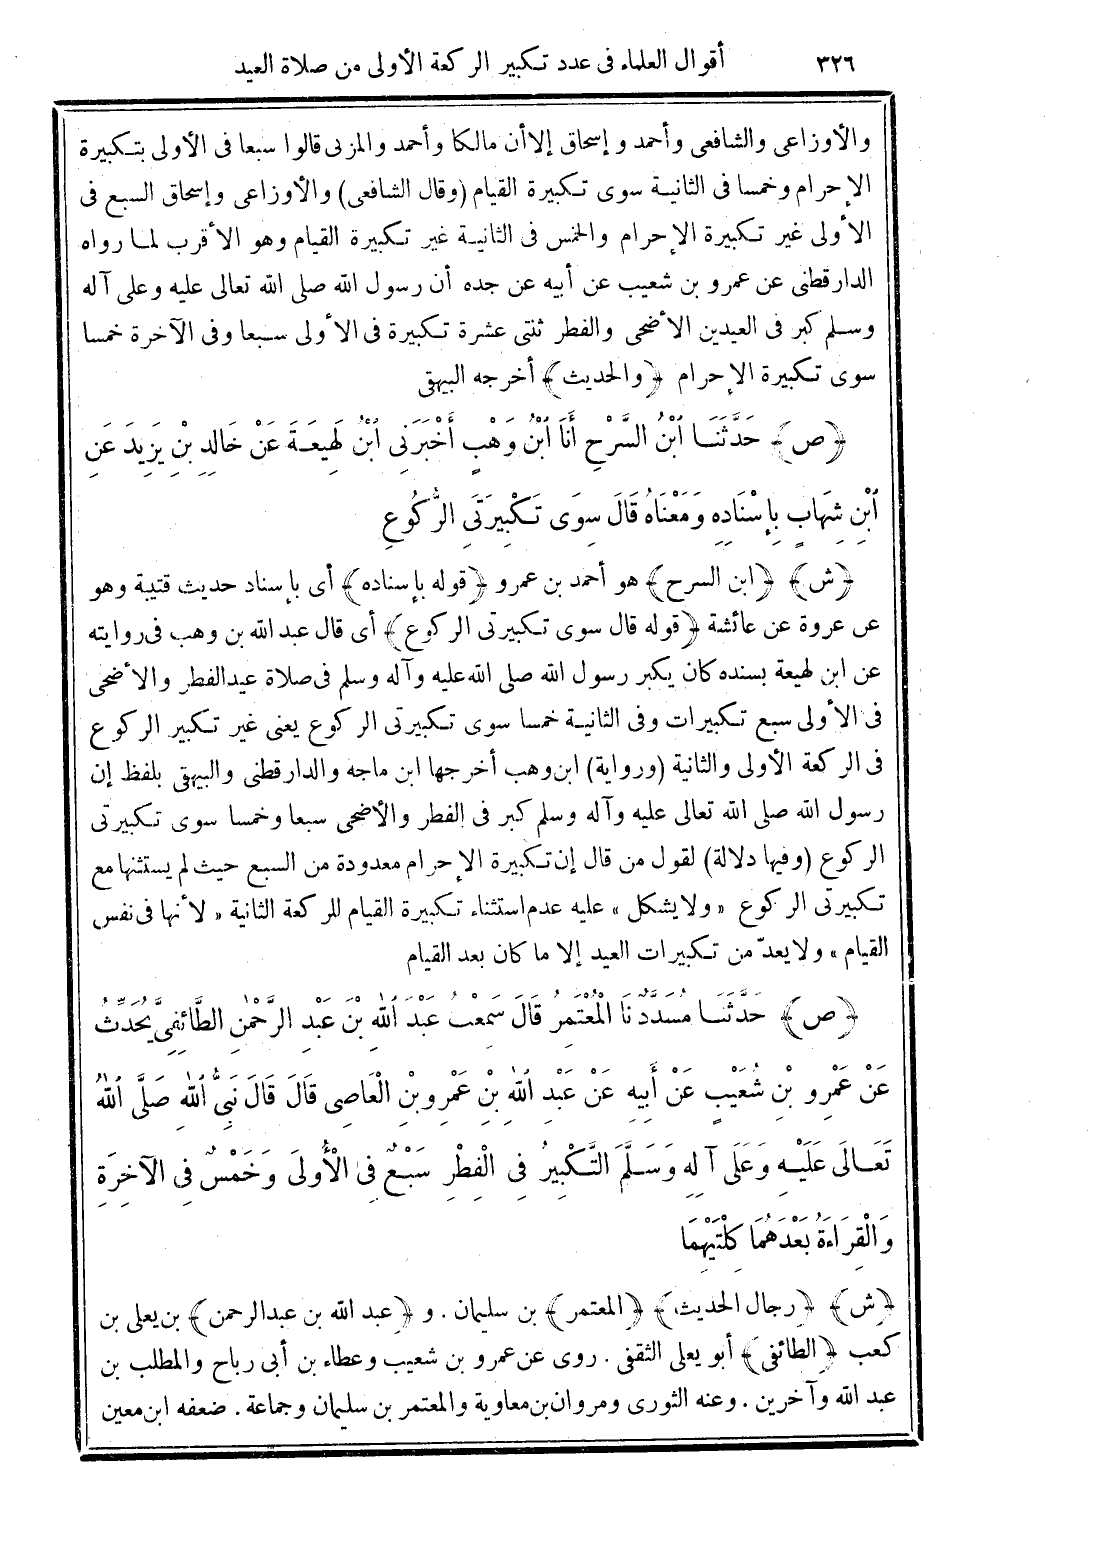 ٣٢٦ أقوال العلماء فى عدد تكبير الركعة الأولى من صلاة العيد
والأوزاعى والشافعى وأحمد وإسحاق إلاأن مالكا وأحمد والمزنى قالوا سبعا فى الأولى بتكبيرة
الإحرام وخمسا فى الثانية سوى تكبيرة القيام (وقال الشافعى) والأوزاعى وإسحاق السبع فى
الأولى غير تكبيرة الإحرام والخمس فى الثانية غير تكبيرة القيام وهو الأقرب لما رواه
الدارقطنى عن عمرو بن شعيب عن أبيه عن جده أن رسول الله صلى الله تعالى عليه وعلى آله
وسلم كبر فى العيدين الأضحى والفطر ثنتى عشرة تكبيرة فى الأولى سبعا وفى الآخرة خمسا
سوى تكبيرة الإحرام ﴿والحديث﴾ أخرجه البيهقى
﴿ص﴾ حَدَّثَنَا ابْنُ السَّرْحِ أَنَا ابْنُ وَهْبٍ أَخْبَرَنِى ابْنُ لَهِيعَةَ عَنْ خَالِدِ بْنِ يَزِيدَ عَنِ
ابْنِ شِهَابٍ بِإِسْنَادِهِ وَمَعْنَاهُ قَالَ سِوَى تَكْبِيرَتَىِ الرُّكُوعِ
﴿ش﴾ ﴿ابن السرح﴾ هو أحمد بن عمرو ﴿قوله بإسناده﴾ أى بإسناد حديث قتيبة وهو
عن عروة عن عائشة ﴿قوله قال سوى تكبيرتى الركوع﴾ أى قال عبد الله بن وهب فى روايته
عن ابن لهيعة بسنده كان يكبر رسول الله صلى الله عليه وآله وسلم فى صلاة عيد الفطر والأضحى
فى الأولى سبع تكبيرات وفى الثانية خمسا سوى تكبيرتى الركوع يعنى غير تكبير الركوع
فى الركعة الأولى والثانية (ورواية) ابن وهب أخرجها ابن ماجه والدارقطنى والبيهقى بلفظ إن
رسول الله صلى الله تعالى عليه وآله وسلم كبر فى الفطر والأضحى سبعا وخمسا سوى تكبيرتى
الركوع (وفيها دلالة) لقول من قال إن تكبيرة الإحرام معدودة من السبع حيث لم يستثنها مع
تكبيرتى الركوع «ولا يشكل» عليه عدم استثناء تكبيرة القيام للركعة الثانية «لأنها فى نفس
القيام» ولا يعدّ من تكبيرات العيد إلا ما كان بعد القيام
﴿ص﴾ حَدَّثَنَا مُسَدَّدٌ نَا الْمُعْتَمِرُ قَالَ سَمِعْتُ عَبْدَ اللهِ بْنَ عَبْدِ الرَّحْمٰنِ الطَّائِفِىَّ يُحَدِّثُ
عَنْ عَمْرِو بْنِ شُعَيْبٍ عَنْ أَبِيهِ عَنْ عَبْدِ اللهِ بْنِ عَمْرِو بْنِ الْعَاصِى قَالَ قَالَ نَبِىُّ اللهِ صَلَّى اللهُ
تَعَالَى عَلَيْهِ وَعَلَى آلِهِ وَسَلَّمَ التَّكْبِيرُ فِى الْفِطْرِ سَبْعٌ فِى الْأُولَى وَخَمْسٌ فِى الآخِرَةِ
وَالْقِرَاءَةُ بَعْدَهُمَا كِلْتَيْهِمَا
﴿ش﴾ ﴿رجال الحديث﴾ ﴿المعتمر﴾ بن سليمان. و﴿عبد الله بن عبد الرحمن﴾ بن يعلى بن
كعب ﴿الطائفى﴾ أبو يعلى الثقفى. روى عن عمرو بن شعيب وعطاء بن أبى رباح والمطلب بن
عبد الله وآخرين. وعنه الثورى ومروان بن معاوية والمعتمر بن سليمان وجماعة. ضعفه ابن معين